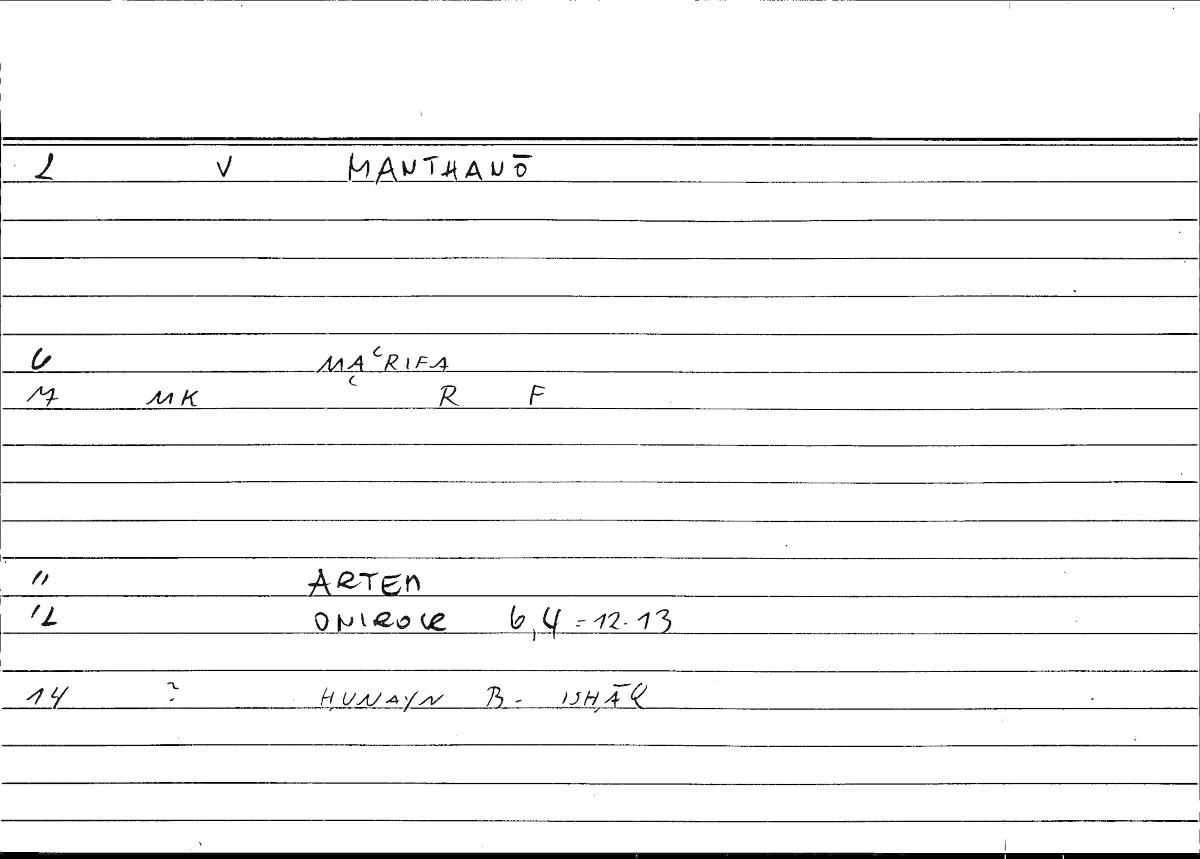 2 V MANTHANŌ
6 MAʿRIFA
7 MK ʿ R F
11 ARTEM
12 ONIROCR 6,4 = 12.13
14 ? ḤUNAYN B. ISḤĀQ